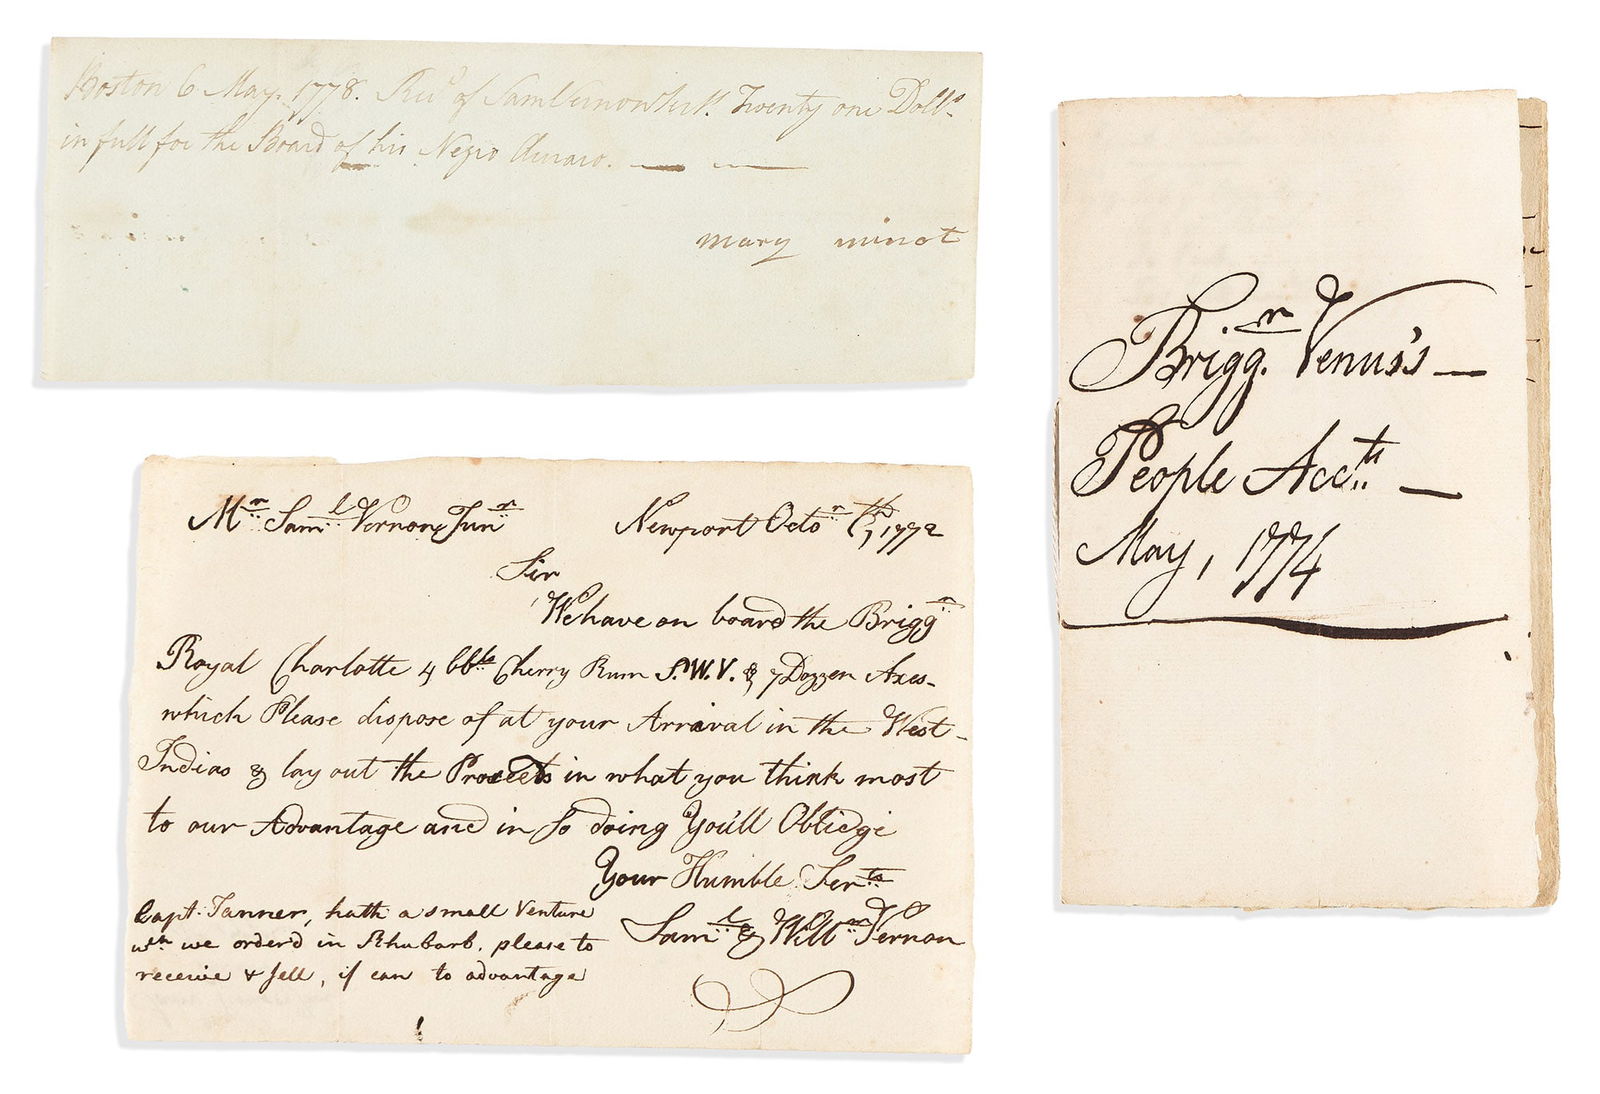 Boston 6 May. 1778. Rec.d of Sam Vernon Twenty one Doll.s
in full for the Board of his Negro
mary minot
M.r Sam.l Vernon, Jun.r Newport Octo.r 6th, 1772
Sir
We have on board the Brigg.n
Royal Charlotte 4 bb.ls Cherry Rum S.W.V. & 7 Dozzen Axes-
which Please dispose of at your Arrival in the West-
Indias & lay out the Proceeds in what you think most
to our Advantage and in so doing You'll Oblidge
Your Humble Ser.ts
Sam.l & Will.m Vernon
Capt. Tanner, hath a small Venture
w.ch we order'd in Rhubarb, please to
receive & sell, if can to advantage
Brigg.n Venus's —
People Acc.ts —
May, 1774